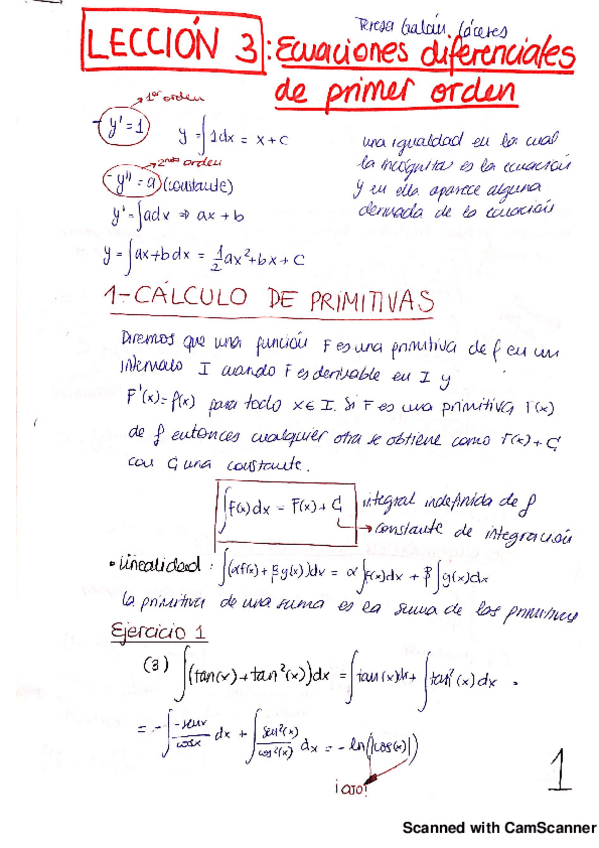 Teresa Galán Cáceres
LECCIÓN 3: Ecuaciones diferenciales
de primer orden
1er orden
- y' = 1 y = ∫1dx = x + c
2ndo orden
- y'' = a (constante)
y' = ∫adx ⇒ ax + b
y = ∫ax+b dx = 1/2 ax² + bx + C
una igualdad en la cual
la incógnita es la ecuación
y en ella aparece alguna
derivada de la ecuación
1- CÁLCULO DE PRIMITIVAS
Diremos que una función F es una primitiva de f en un
intervalo I cuando F es derivable en I y
F'(x) = f(x) para todo x ∈ I. Si F es una primitiva F(x)
de f entonces cualquier otra se obtiene como F(x) + C,
con C una constante.
∫f(x) dx = F(x) + C integral indefinida de f
→ constante de integración
• Linealidad: ∫(αf(x) + βg(x))dx = α∫f(x)dx + β∫g(x)dx
la primitiva de una suma es la suma de las primitivas
Ejercicio 1
(3) ∫(tan(x) + tan²(x))dx = ∫tan(x)dx + ∫tan²(x)dx
= -∫-senx/cosx dx + ∫sen²(x)/cos²(x) dx = -ln(|cos(x)|)
¡ojo!
1
Scanned with CamScanner